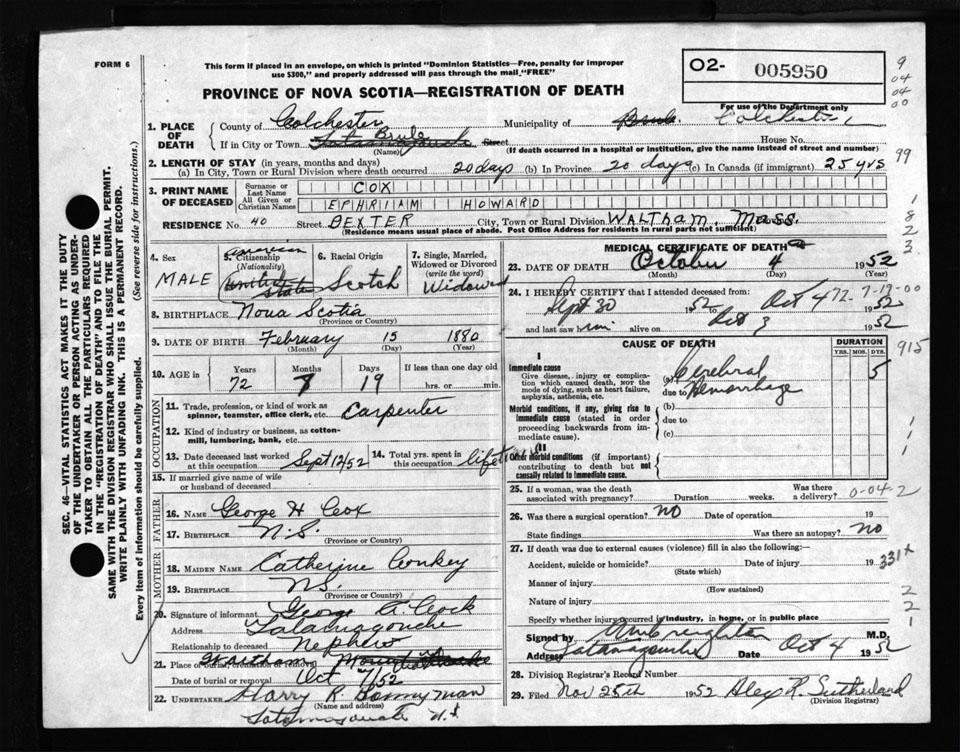 FORM 6
This form if placed in an envelope, on which is printed "Dominion Statistics—Free, penalty for improper
use $300," and properly addressed will pass through the mail "FREE"
PROVINCE OF NOVA SCOTIA—REGISTRATION OF DEATH
O2- 005950
For use of the Department only
9
04
04
00
99
1
8
2
3
SEC. 46—VITAL STATISTICS ACT MAKES IT THE DUTY
OF THE UNDERTAKER OR PERSON ACTING AS UNDER-
TAKER TO OBTAIN ALL THE PARTICULARS REQUIRED
IN THE "REGISTRATION OF DEATH" AND TO FILE THE
SAME WITH THE DIVISION REGISTRAR WHO SHALL ISSUE THE BURIAL PERMIT.
WRITE PLAINLY WITH UNFADING INK. THIS IS A PERMANENT RECORD.
Every item of information should be carefully supplied. (See reverse side for instructions.)
1. PLACE OF DEATH
County of Colchester Municipality of Colchester
If in City or Town Brule Street House No.
(Name) (If death occurred in a hospital or institution, give the name instead of street and number)
2. LENGTH OF STAY (in years, months and days)
(a) In City, Town or Rural Division where death occurred 20 days (b) In Province 20 days (c) In Canada (if immigrant) 25 yrs
3. PRINT NAME OF DECEASED
Surname or Last Name COX
All Given or Christian Names EPHRIAM HOWARD
RESIDENCE No. 40 Street DEXTER City, Town or Rural Division WALTHAM. Mass.
(Residence means usual place of abode. Post Office Address for residents in rural parts not sufficient)
4. Sex MALE
5. Citizenship (Nationality) American United States
6. Racial Origin Scotch
7. Single, Married, Widowed or Divorced (write the word) Widowed
8. BIRTHPLACE Nova Scotia
(Province or Country)
9. DATE OF BIRTH February 15 1880
(Month) (Day) (Year)
10. AGE in Years Months Days If less than one day old
72 7 19 hrs. or min.
OCCUPATION
11. Trade, profession, or kind of work as spinner, teamster, office clerk, etc. Carpenter
12. Kind of industry or business, as cotton-mill, lumbering, bank, etc.
13. Date deceased last worked at this occupation Sept 12/52 14. Total yrs. spent in this occupation lifetime
15. If married give name of wife or husband of deceased
FATHER
16. NAME George H Cox
17. BIRTHPLACE N.S.
(Province or Country)
MOTHER
18. MAIDEN NAME Catherine Conkey
19. BIRTHPLACE N.S.
(Province or Country)
20. Signature of informant George A. Cock
Address Tatamagouche
Relationship to deceased Nephew
21. Place of burial, cremation or removal Waltham
Date of burial or removal Oct 7/52
22. UNDERTAKER Harry R. Bonnyman
(Name and address)
Tatamagouche N.S
MEDICAL CERTIFICATE OF DEATH
23. DATE OF DEATH October 4 1952
(Month) (Day) (Year)
24. I HEREBY CERTIFY that I attended deceased from:
72-7-19-00
Sept 30 1952 to Oct 4 1952
and last saw him alive on Oct 3 1952
CAUSE OF DEATH DURATION
YRS. MOS. DYS.
915
I
Immediate cause
Give disease, injury or complication which caused death, NOT the mode of dying, such as heart failure, asphyxia, asthenia, etc.
(a) Cerebral 5
due to Hemorrhage
Morbid conditions, if any, giving rise to immediate cause (stated in order proceeding backwards from immediate cause).
(b)
due to
(c)
II
Other morbid conditions (if important) contributing to death but not causally related to immediate cause.
1
1
1
25. If a woman, was the death associated with pregnancy? Duration weeks. Was there a delivery?
0-04-2
26. Was there a surgical operation? NO Date of operation 19
State findings Was there an autopsy? NO
27. If death was due to external causes (violence) fill in also the following:—
Accident, suicide or homicide? Date of injury 19
(State which)
331x
Manner of injury
(How sustained)
Nature of injury
2
2
1
Specify whether injury occurred in industry, in home, or in public place
Signed by Creighton M.D.
Address Tatamagouche Date Oct 4 1952
28. Division Registrar's Record Number
29. Filed Nov 25th 1952 Alex R. Sutherland
(Division Registrar)